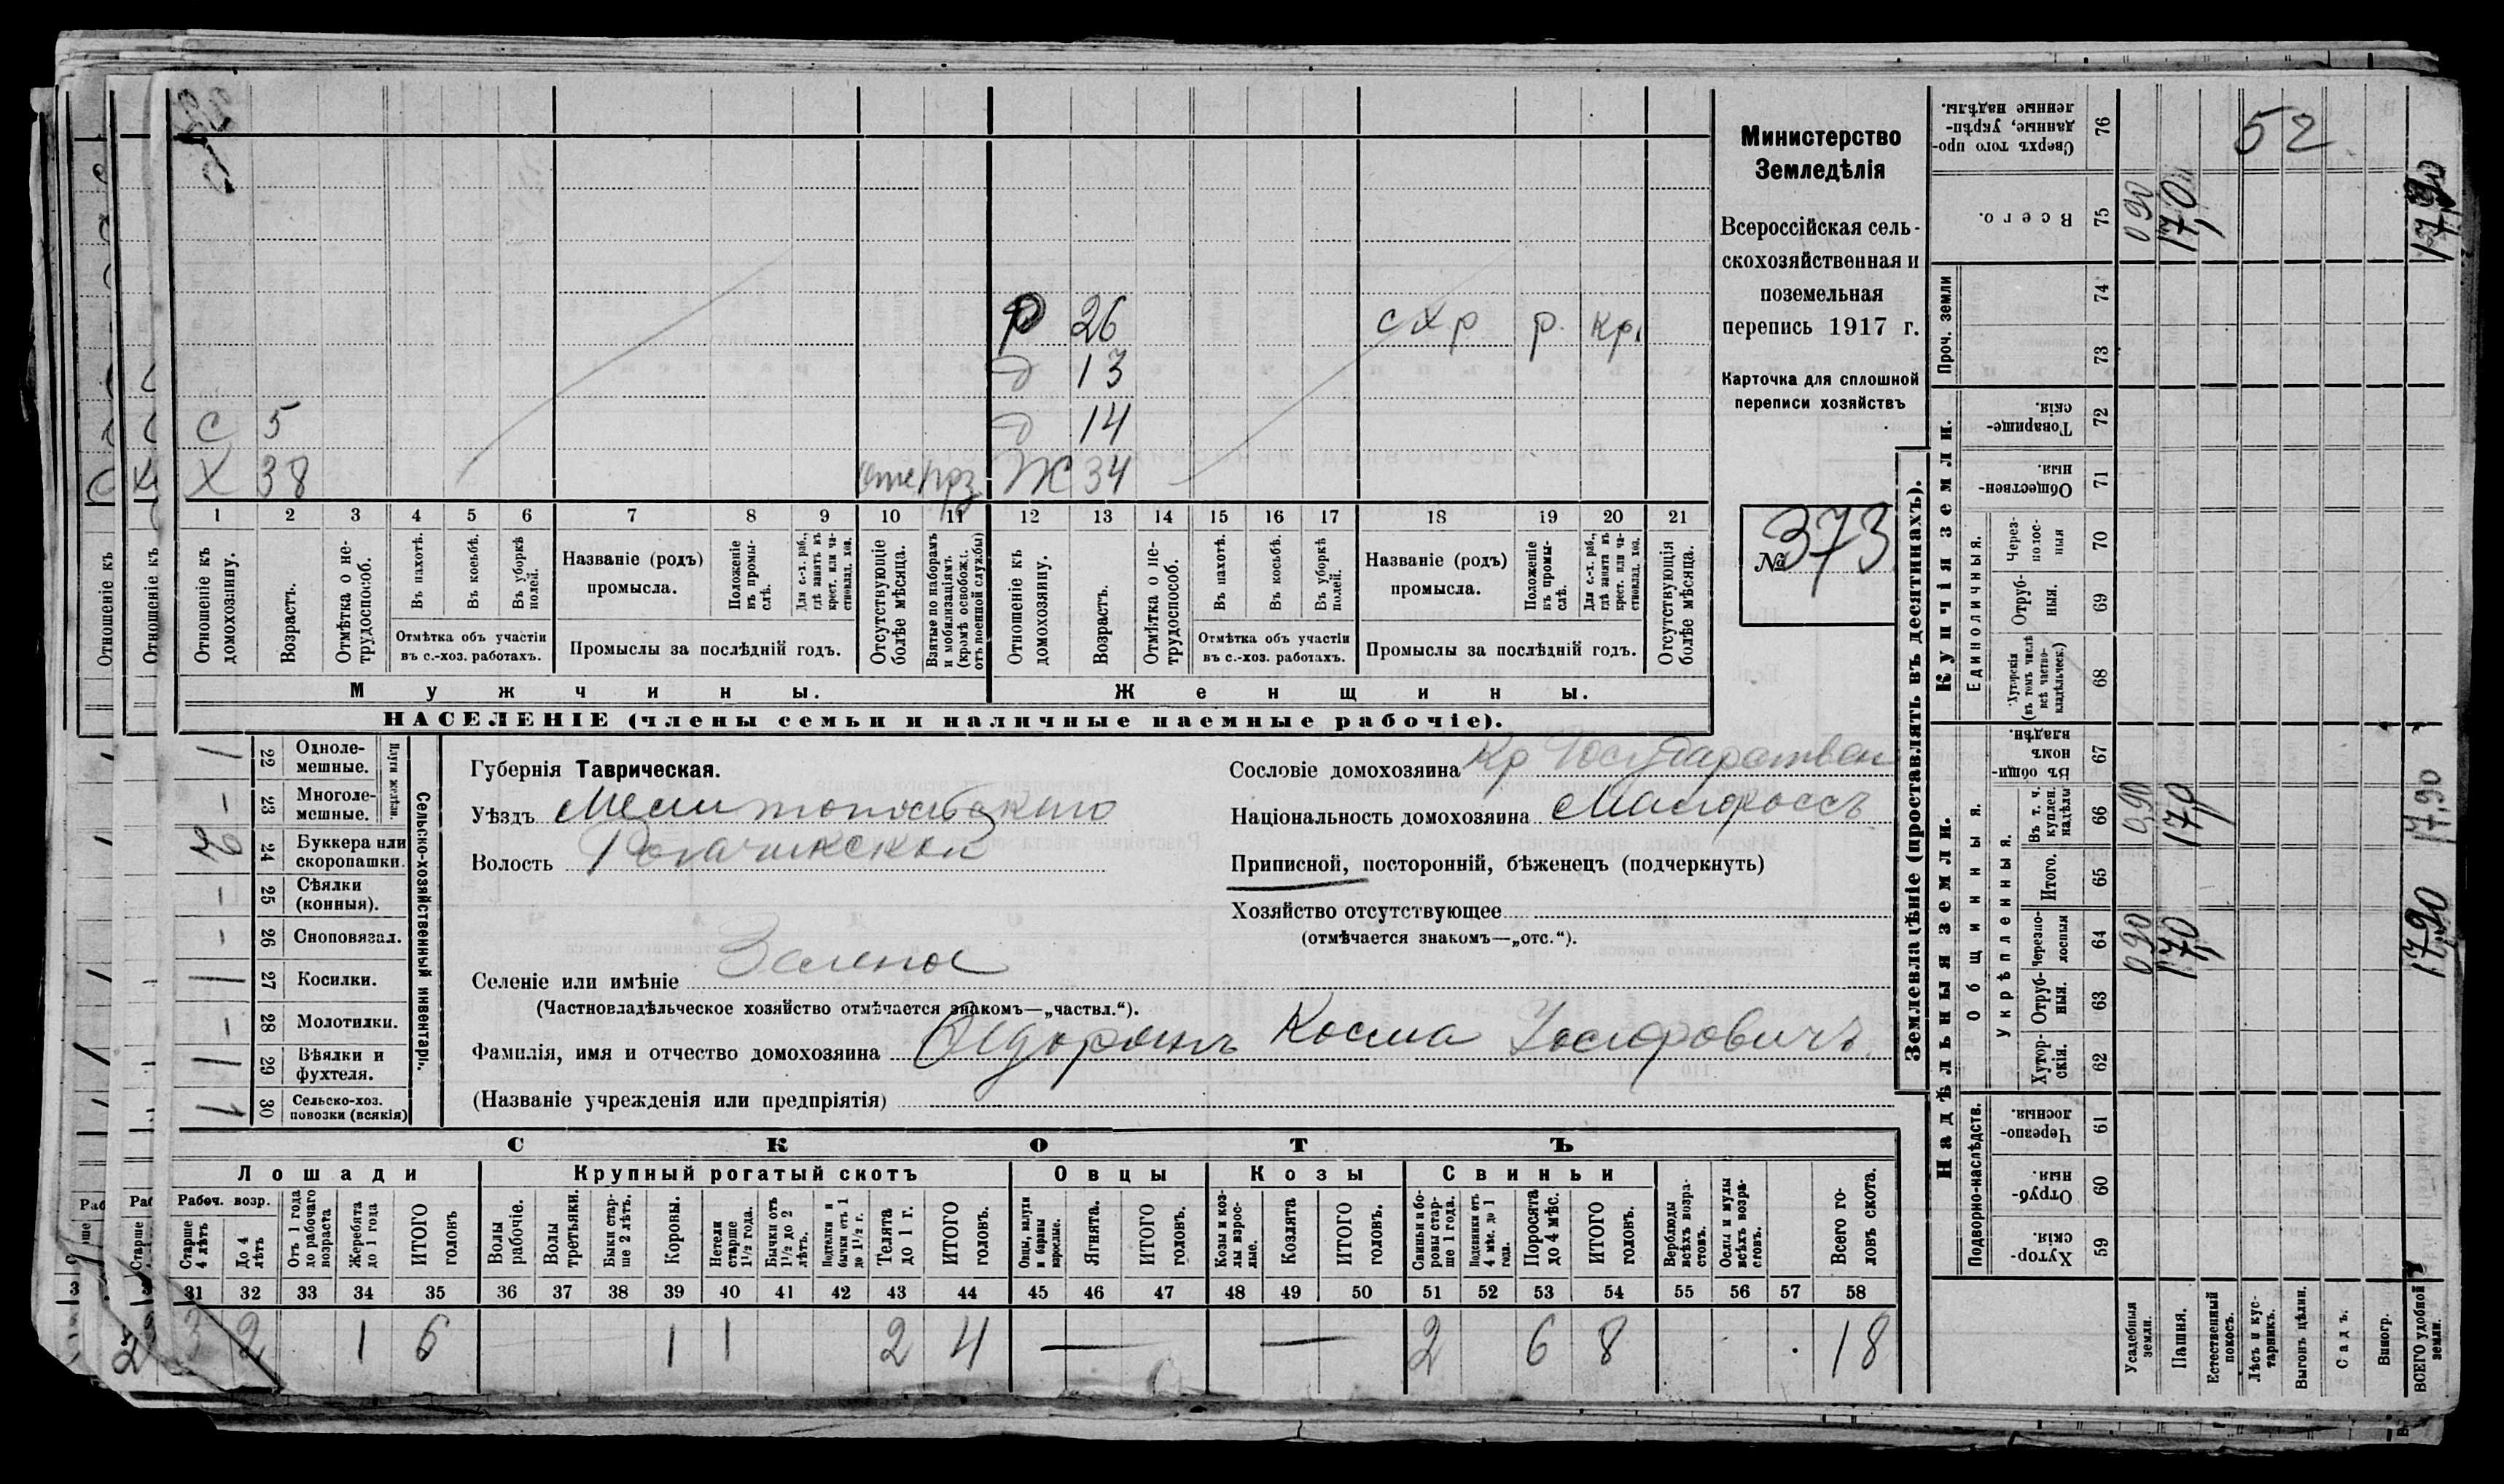 Министерство
Земледѣлія
Всероссійская сель-
скохозяйственная и
поземельная
перепись 1917 г.
Карточка для сплошной
переписи хозяйствъ
№ 373
52
Р 26 схр р. кр.
д 13
С 5 д 14
Х 38 Ж 34
1 2 3 4 5 6 7 8 9 10 11 12 13 14 15 16 17 18 19 20 21
Отношеніе къ домохозяину.
Возрастъ.
Отмѣтка о не-трудоспособ.
Въ пахотѣ.
Въ косьбѣ.
Въ уборкѣ полей.
Отмѣтка объ участіи
въ с.-хоз. работахъ.
Названіе (родъ)
промысла.
Положеніе въ промы-слѣ.
Для с.-х. раб., гдѣ занятъ въ крест. или ча-стновлад. хоз.
Промыслы за послѣдній годъ.
Отсутствующіе болѣе мѣсяца.
Взятые по наборамъ и мобилизаціямъ (кромѣ освобож. отъ военной службы)
Отношеніе къ домохозяину.
Возрастъ.
Отмѣтка о не-трудоспособ.
Въ пахотѣ.
Въ косьбѣ.
Въ уборкѣ полей.
Отмѣтка объ участіи
въ с.-хоз. работахъ.
Названіе (родъ)
промысла.
Положеніе въ промы-слѣ.
Для с.-х. раб., гдѣ занята въ крест. или ча-стновлад. хоз.
Промыслы за послѣдній годъ.
Отсутствующія болѣе мѣсяца.
Мужчины. Женщины.
НАСЕЛЕНІЕ (члены семьи и наличные наемные рабочіе).
Сельско-хозяйственный инвентарь.
Плуги желѣзн.
22 Одноле-мешные. 1
23 Многоле-мешные. –
24 Буккера или скоропашки.
25 Сѣялки (конныя). –
26 Сноповязал. –
27 Косилки. 1
28 Молотилки. –
29 Вѣялки и фухтеля. 1
30 Сельско-хоз. повозки (всякія) 1
Губернія Таврическая.
Уѣздъ Мелитопольскаго
Волость Рогачикской
Сословіе домохозяина Кр Государствен
Національность домохозяина Малороссъ
Приписной, посторонній, бѣженецъ (подчеркнуть)
Хозяйство отсутствующее
(отмѣчается знакомъ—„отс.“).
Селеніе или имѣніе
(Частновладѣльческое хозяйство отмѣчается знакомъ—„частвл.“).
Фамилія, имя и отчество домохозяина Косма
(Названіе учрежденія или предпріятія)
СКОТЪ
Лошади Крупный рогатый скотъ Овцы Козы Свиньи
Рабоч. возр.
Старше 4 лѣтъ
До 4 лѣтъ
Отъ 1 года до рабочаго возраста
Жеребята до 1 года
ИТОГО головъ
Волы рабочіе.
Волы третьяки.
Быки стар-ше 2 лѣтъ.
Коровы.
Нетели старше 1½ года.
Бычки отъ 1½ до 2 лѣтъ.
Подтелки и бычки отъ 1 до 1½ г.
Телята до 1 г.
ИТОГО головъ.
Овцы, валухи и бараны взрослые.
Ягнята.
ИТОГО головъ.
Козы и коз-лы взрос-лые.
Козлята
ИТОГО головъ.
Свиньи и бо-ровы стар-ше 1 года.
Подсвинки отъ 4 мѣс. до 1 года.
Поросята до 4 мѣс.
ИТОГО головъ.
Верблюды всѣхъ возра-стовъ.
Ослы и мулы всѣхъ возра-стовъ.
Всего го-ловъ скота.
31 32 33 34 35 36 37 38 39 40 41 42 43 44 45 46 47 48 49 50 51 52 53 54 55 56 57 58
3 2 1 6 1 1 2 4 — — 2 6 8 18
Землевладѣніе (проставлять въ десятинахъ).
Купчія земли.
Надѣльныя земли.
Сверхъ того про-данные, укрѣп-ленные надѣлы. 76
Всего. 75
Проч. земли 74 73
Товарище-скія. 72
Обществен-ныя. 71
Единоличныя.
Через-полос-ныя 70
Отруб-ныя. 69
Хуторскія (въ томъ числѣ всѣ частно-владѣльческ.) 68
Общинныя.
Въ общин-номъ владѣн. 67
Укрѣпленныя.
Въ т. ч. куплен. надѣлы 66
Итого. 65
Черезпо-лосныя 64
Отруб-ныя. 63
Хутор-скія. 62
Подворно-наслѣдств.
Черезпо-лосныя. 61
Отруб-ныя 60
Хутор-скія. 59
Усадебныя земли. 0,90 0,90 0,90
Пашня. 17,0 17,0 17,0
Естественный покосъ.
Лѣсъ и кус-тарникъ.
Выгонъ цѣлин.
Садъ.
Виногр.
ВСЕГО удобной земли. 17,90 17,90 17,90
Отношеніе къ
Отношеніе къ